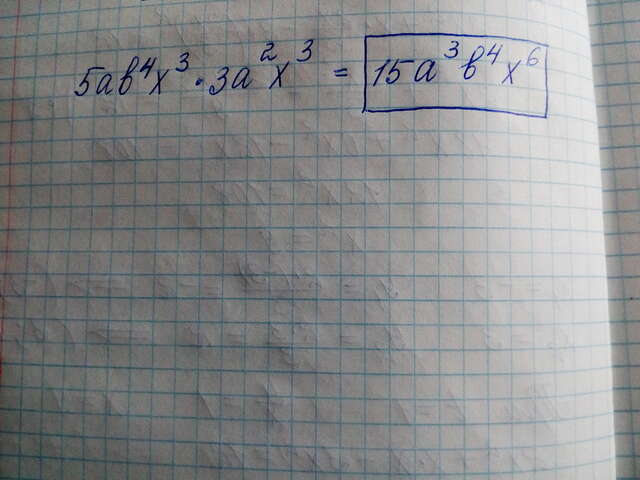 5ab⁴x³ · 3a²x³ = 15a³b⁴x⁶